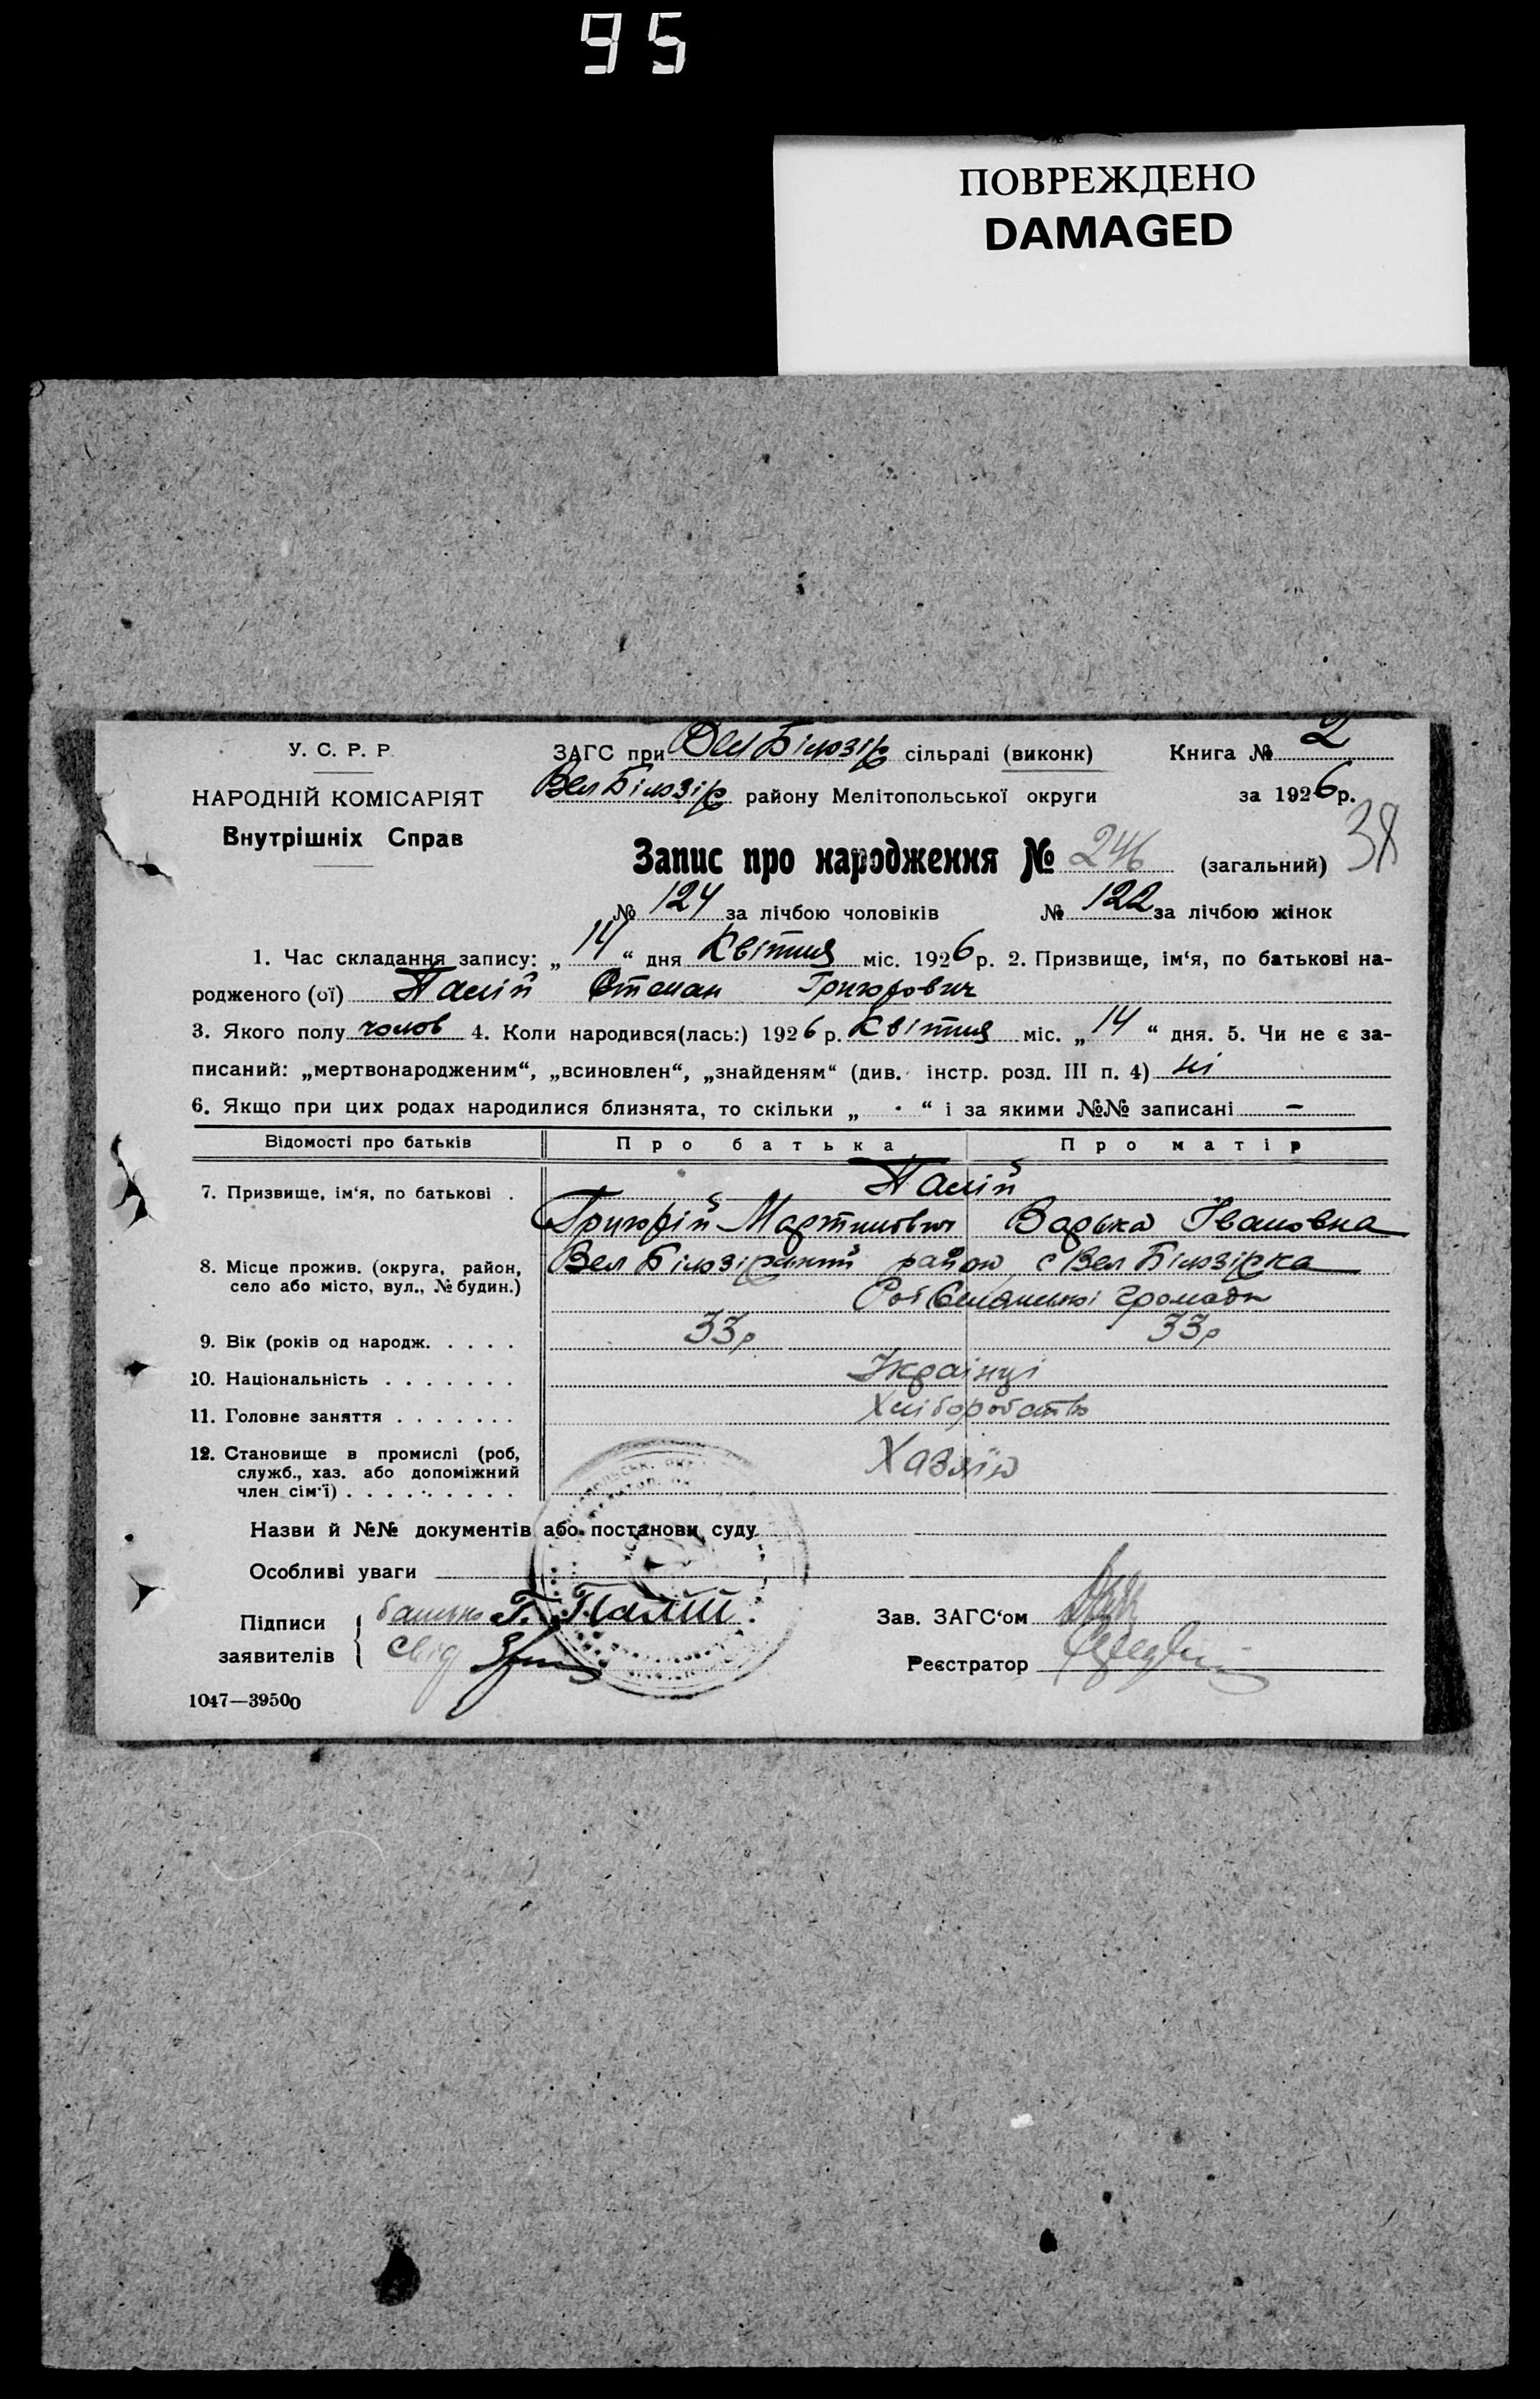 95
ПОВРЕЖДЕНО
DAMAGED
У. С. Р. Р.
НАРОДНІЙ КОМІСАРІЯТ
Внутрішніх Справ
ЗАГС при Вел Білозір сільраді (виконк) Книга № 2
Вел Білозір району Мелітопольської округи за 1926 р.
38
Запис про народження № 246 (загальний)
№ 124 за лічбою чоловіків № 122 за лічбою жінок
1. Час складання запису: „14“ дня Квітня міс. 1926 р. 2. Призвище, ім‘я, по батькові на-
родженого (ої) Палій Григорович
3. Якого полу чолов 4. Коли народився(лась:) 1926 р. Квітня міс. „14“ дня. 5. Чи не є за-
писаний: „мертвонародженим“, „всиновлен“, „знайденям“ (див. інстр. розд. III п. 4) ні
6. Якщо при цих родах народилися близнята, то скільки „ · “ і за якими №№ записані –
Відомості про батьків Про батька Про матір
7. Призвище, ім‘я, по батькові . Палій
Григорій Мартинович Варька Івановна
8. Місце прожив. (округа, район,
село або місто, вул., № будин.)
Вел Білозірський район с Вел Білозірка
громади
9. Вік (років од народж. . . . . 33р 33р
10. Національність . . . . . . . Українці
11. Головне заняття . . . . . . . Хліборобство
12. Становище в промислі (роб,
служб., хаз. або допоміжний
член сім‘ї) . . . . . . . . . Хазяїн
Назви й №№ документів або постанови суду
Особливі уваги
Підписи
заявителів
батько Г. Палій.
свід
Зав. ЗАГС‘ом
Реєстратор
1047—39500